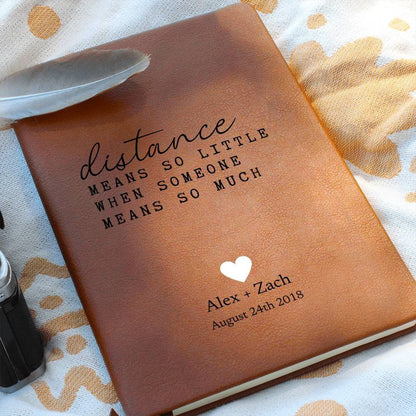 distance
MEANS SO LITTLE
WHEN SOMEONE
MEANS SO MUCH
Alex + Zach
August 24th 2018